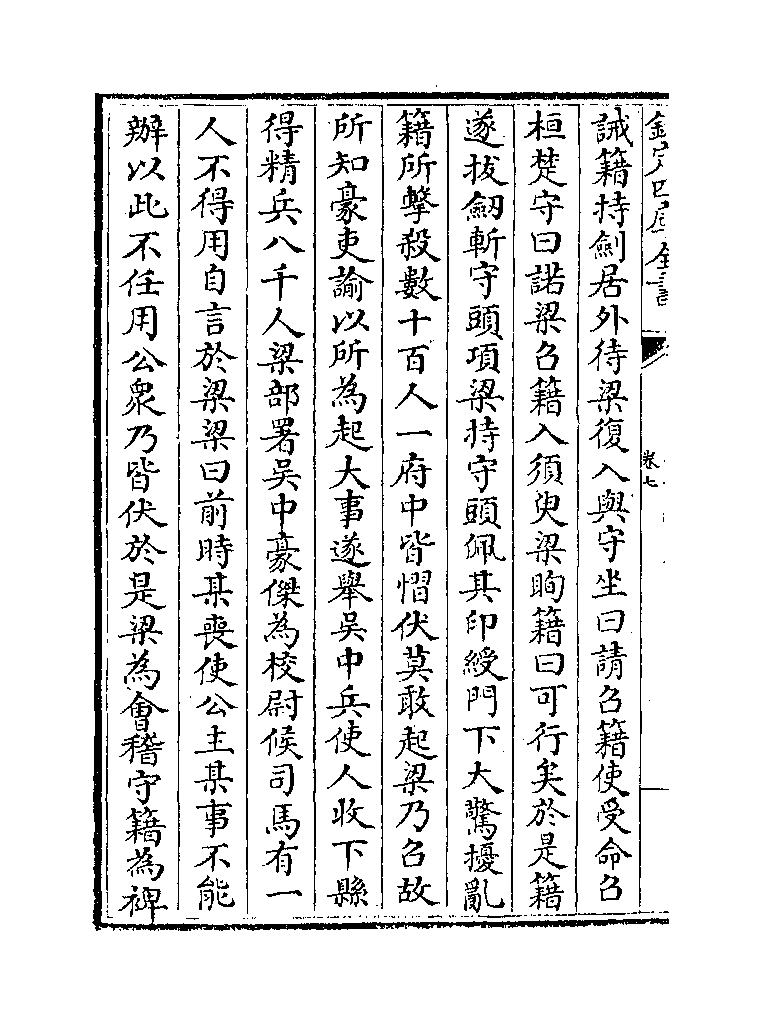 欽定四庫全書
卷七
誡籍持劍居外待梁復入與守坐曰請召籍使受命召
桓楚守曰諾梁召籍入須臾梁眴籍曰可行矣於是籍
遂拔劒斬守頭項梁持守頭佩其印綬門下大驚擾亂
籍所擊殺數十百人一府中皆慴伏莫敢起梁乃召故
所知豪吏諭以所為起大事遂舉吳中兵使人收下縣
得精兵八千人梁部署吳中豪傑為校尉候司馬有一
人不得用自言於梁梁曰前時某喪使公主某事不能
辦以此不任用公衆乃皆伏於是梁為會稽守籍為裨